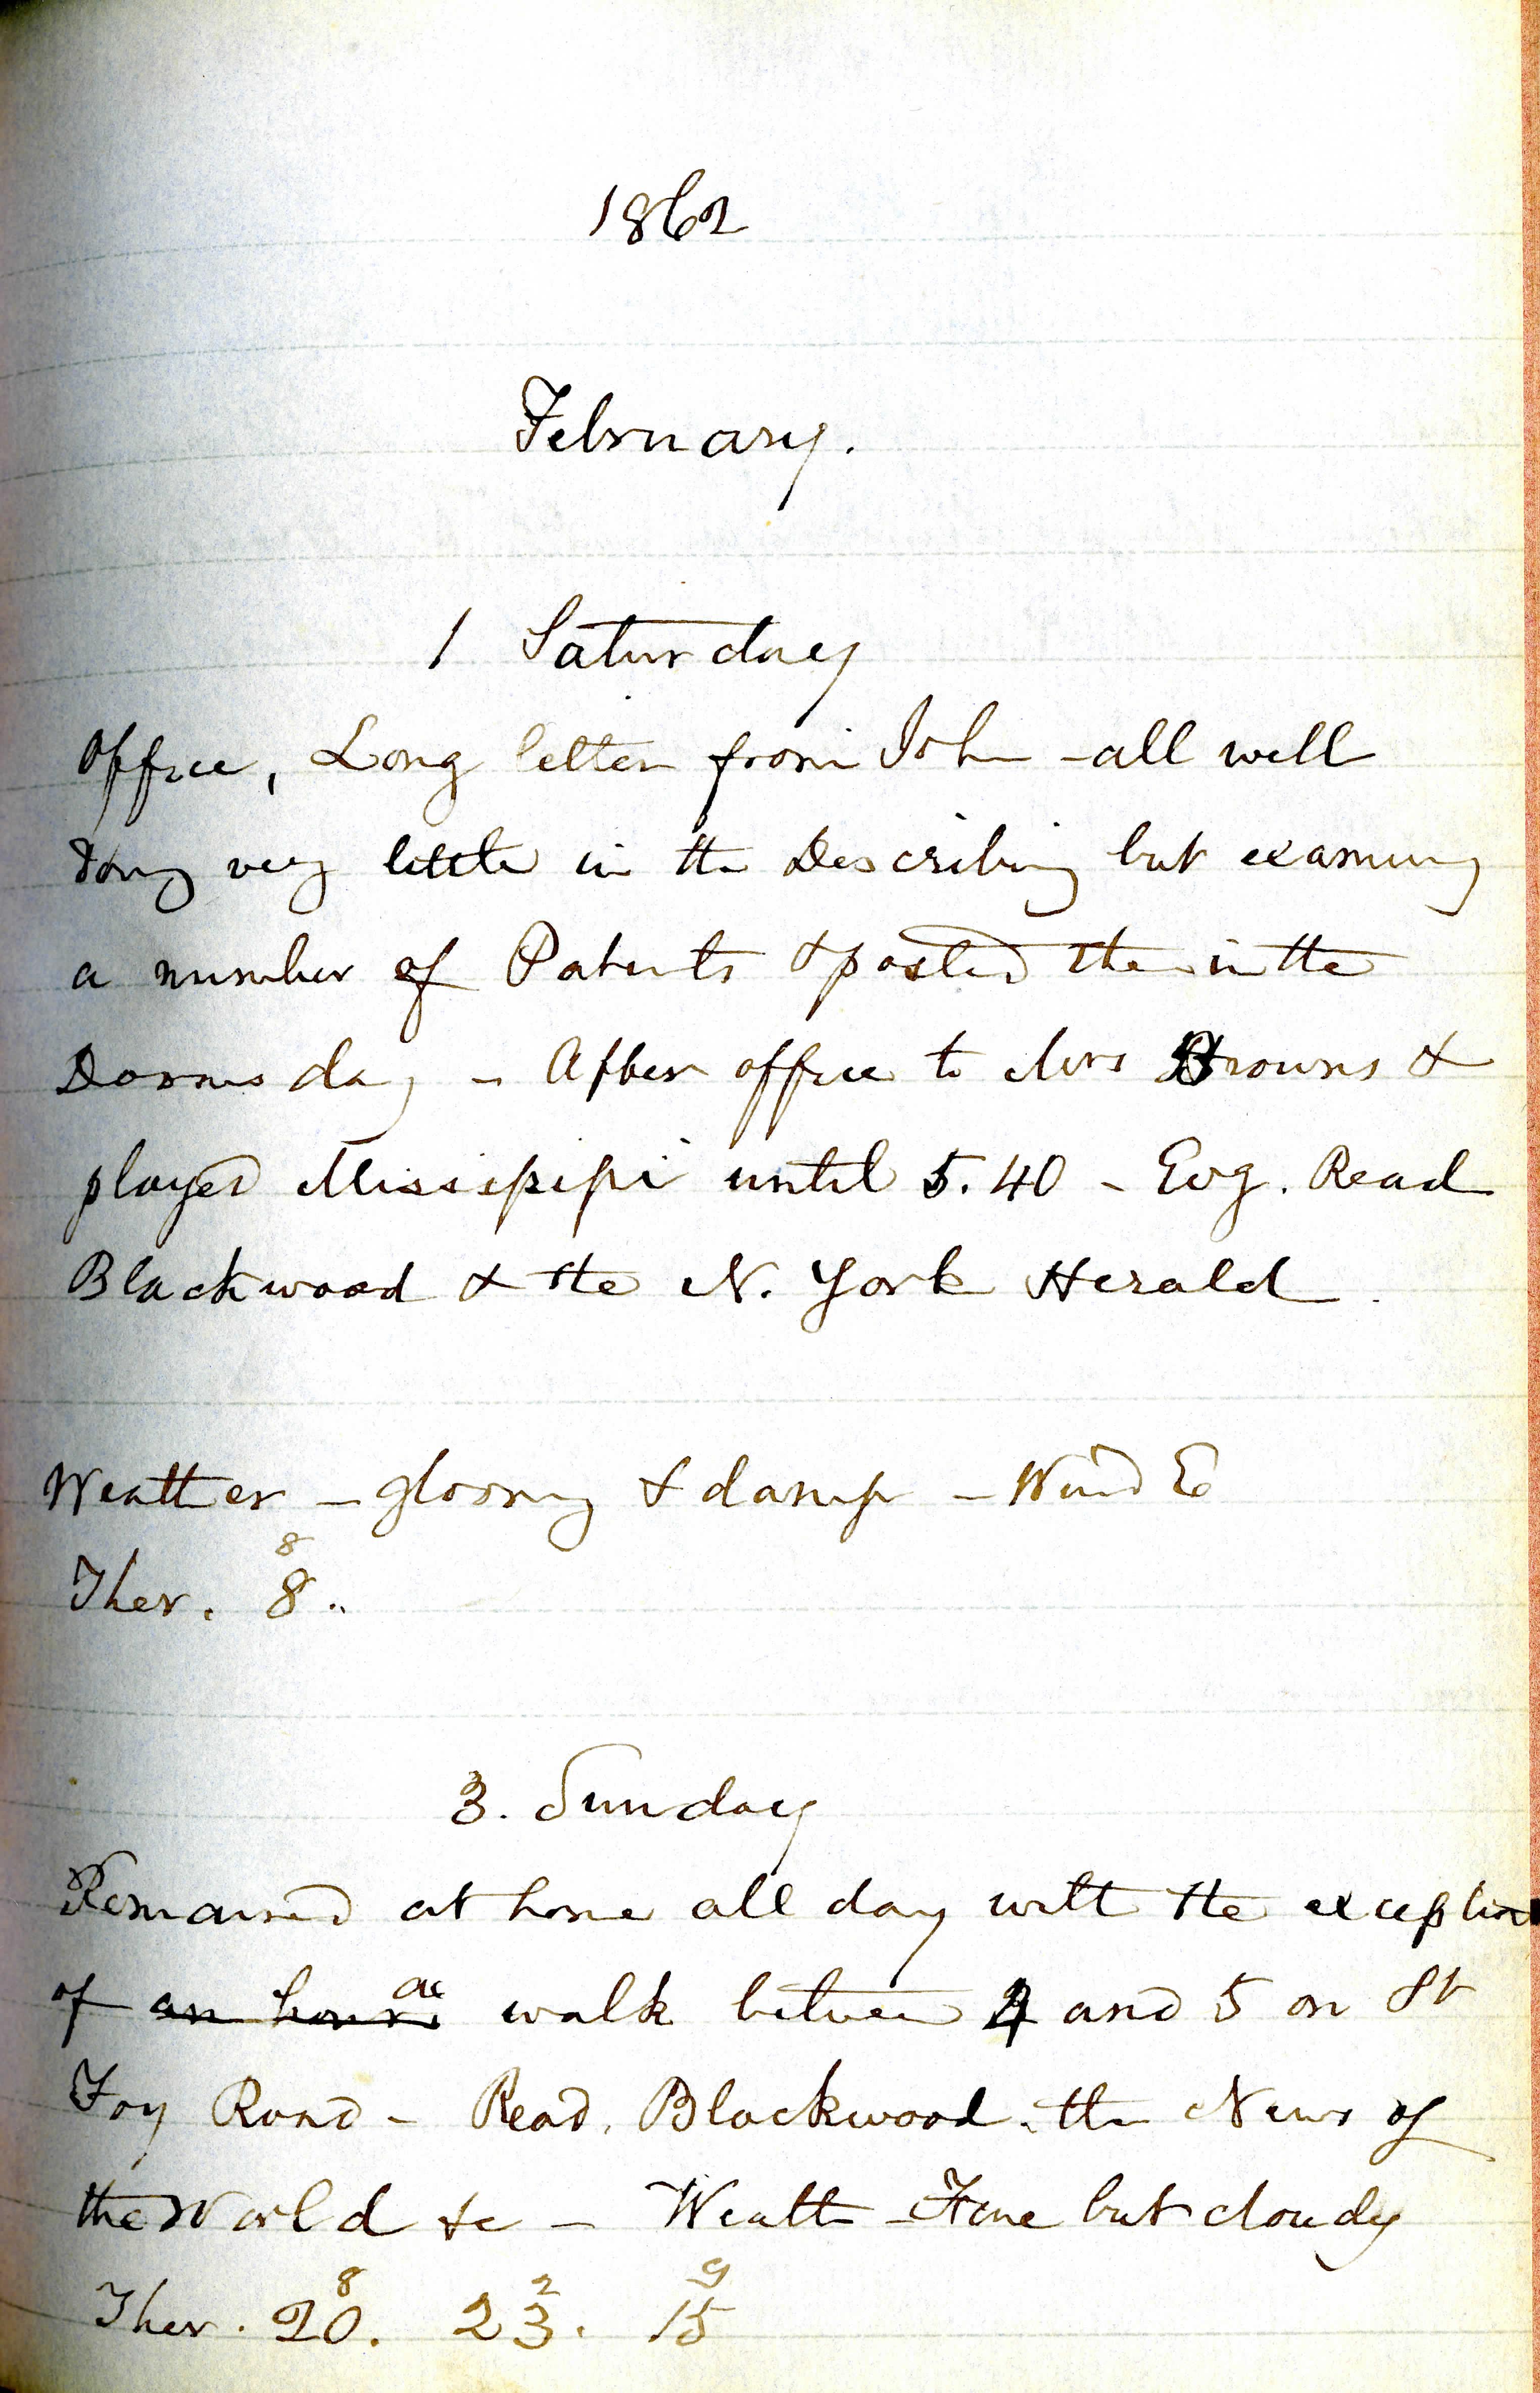 1862
February.
1 Saturday
Office, Long letter from John - all well
doing very little in the Describing but examing
a number of Patents & posted them in the
Dooms day - After office to Mrs Browns &
played Missisipipi until 5.40 - Evg. Read
Blackwood & the N. York Herald.
Weather - gloomy & damp - Wind E
8
Ther. 8 ..
3. Sunday
Remained at home all day with the exception
of an hours a walk between 4 and 5 on St
Foy Road - Read. Blackwood. the News of
the World &c - Weather - Fine but cloudy
8 2 9
Ther. 20. 23. 15